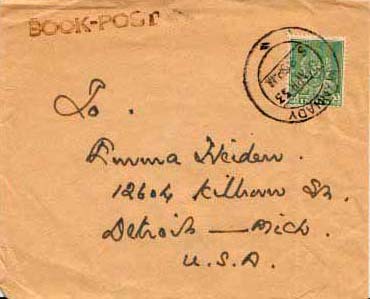 BOOK-POST
To.
Emma Heiden.
12604 Kilbourn St.
Detroit - Mich.
U.S.A.